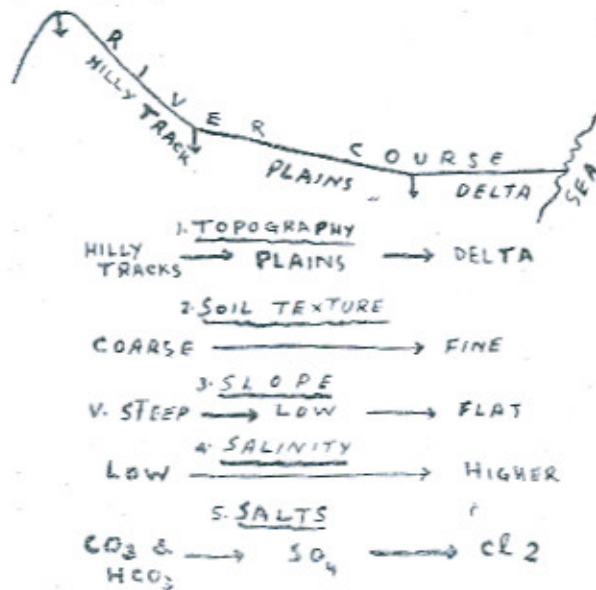 RIVER COURSE
HILLY TRACK
PLAINS
DELTA
SEA
1. TOPOGRAPHY
HILLY TRACKS → PLAINS → DELTA
2. SOIL TEXTURE
COARSE → FINE
3. SLOPE
V. STEEP → LOW → FLAT
4. SALINITY
LOW → HIGHER
5. SALTS
CO3 & HCO3 → SO4 → Cl2